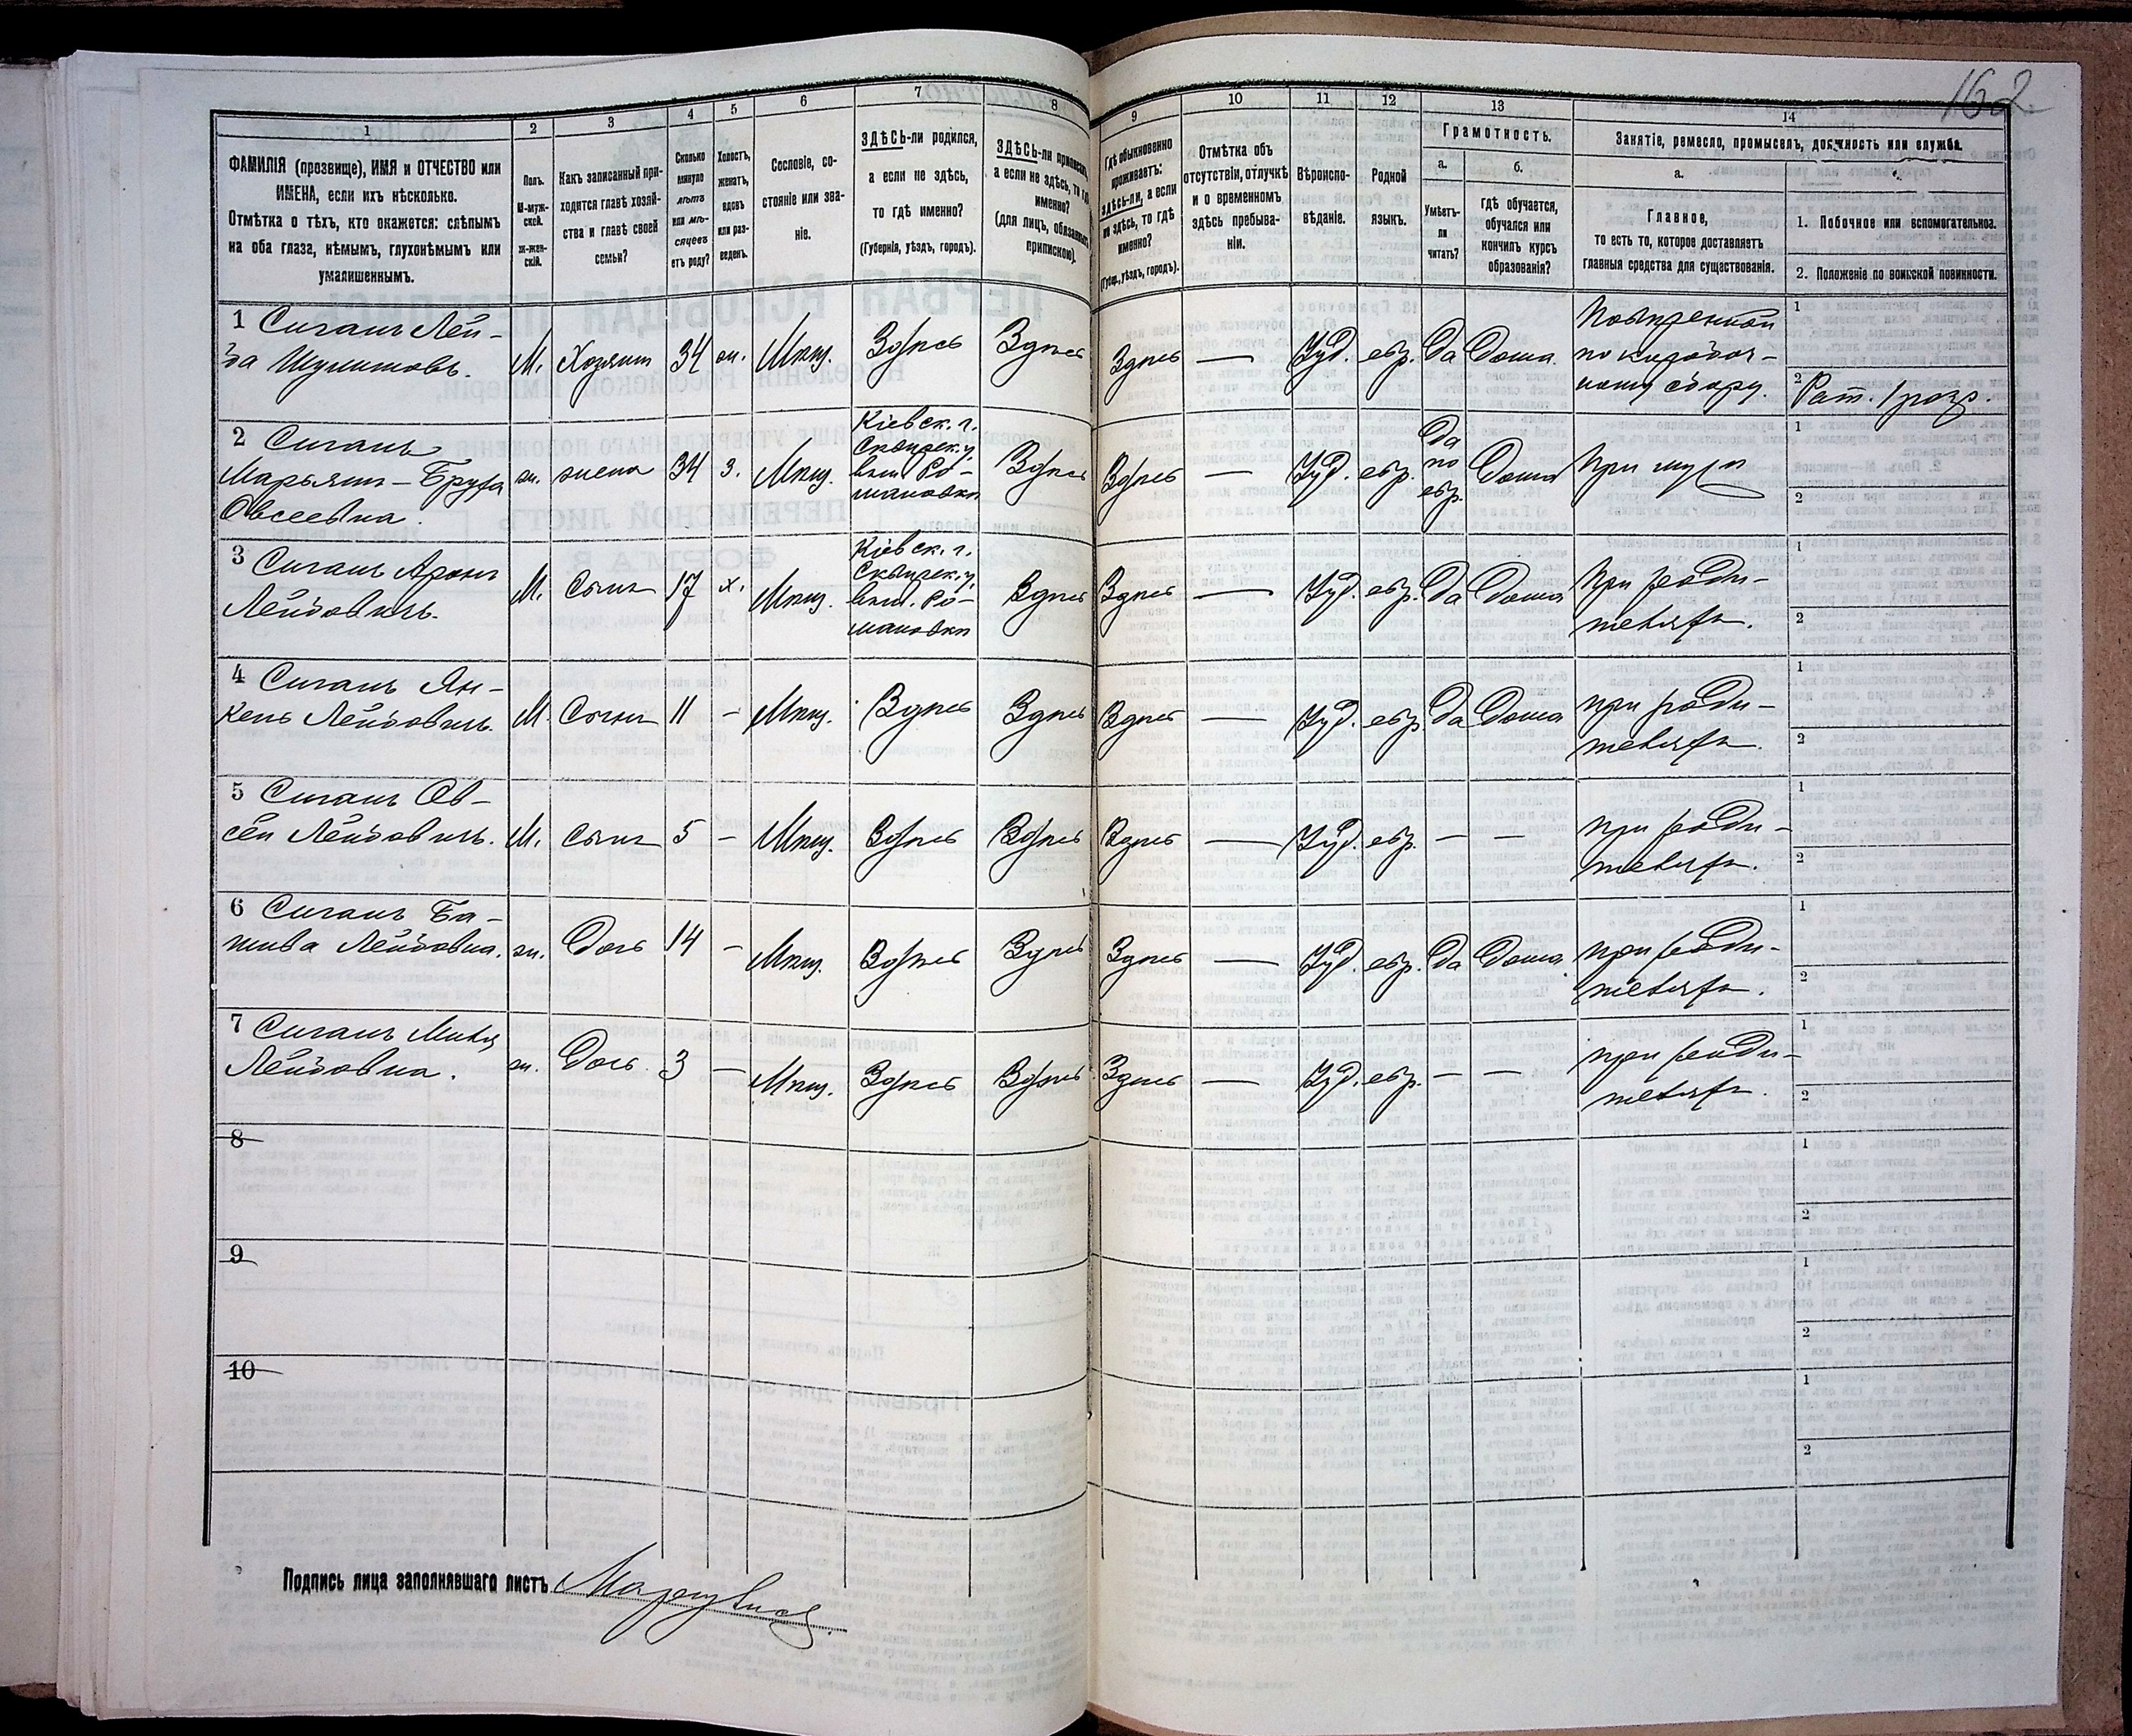 162
1
ФАМИЛІЯ (прозвище), ИМЯ и ОТЧЕСТВО или
ИМЕНА, если ихъ нѣсколько.
Отмѣтка о тѣхъ, кто окажется: слѣпымъ
на оба глаза, нѣмымъ, глухонѣмымъ или
умалишеннымъ.
2
Полъ.
М-муж-
ской.
ж-жен-
скій.
3
Какъ записанный при-
ходится главѣ хозяй-
ства и главѣ своей
семьи?
4
Сколько
минуло
лѣтъ
или мѣ-
сяцевъ
отъ роду?
5
Холостъ,
женатъ,
вдовъ
или раз-
веденъ.
6
Сословіе, со-
стояніе или зва-
ніе.
7
ЗДѢСЬ-ли родился,
а если не здѣсь,
то гдѣ именно?
(Губернія, уѣздъ, городъ).
8
ЗДѢСЬ-ли приписанъ,
а если не здѣсь, то гдѣ
именно?
(для лицъ, обязанныхъ
припискою).
9
Гдѣ обыкновенно
проживаетъ:
здѣсь-ли, а если
не здѣсь, то гдѣ
именно?
(Губ., уѣздъ, городъ).
10
Отмѣтка объ
отсутствіи, отлучкѣ
и о временномъ
здѣсь пребыва-
ніи.
11
Вѣроиспо-
вѣданіе.
12
Родной
языкъ.
13
Грамотность.
а.
Умѣетъ-
ли
читать?
б.
гдѣ обучается,
обучался или
кончилъ курсъ
образованія?
14
Занятіе, ремесло, промыселъ, должность или служба.
а.
Главное,
то есть то, которое доставляетъ
главныя средства для существованія.
1. Побочное или вспомогательное.
2. Положеніе по воинской повинности.
1 Сиганъ Лей-
за
М. Хозяин 34 Мѣщ. Здѣсь Здѣсь Здѣсь — Іуд. евр. Да Дома
по коробоч-
ному сбору.
1
2 Рат. 1 розр.
2 Сиганъ
Марьямъ-Бруха
Овсеевна.
ж. жена 34 з. Мѣщ.
Кіевск. г.
Сквирск. у.
въ м. Ро-
мановки
Здѣсь Здѣсь — Іуд. евр.
Да
по
евр.
Дома При мужѣ
1
2
3 Сиганъ Аронъ
Лейзовичъ.
М. Сынъ 17 х. Мѣщ.
Кіевск. г.
Сквирск. у.
въ м. Ро-
мановки
Здѣсь Здѣсь — Іуд. евр. Да Дома При роди-
теляхъ.
1
2
4 Сиганъ Ян-
кель Лейзовичъ.
М. Сынъ 11 — Мѣщ. Здѣсь Здѣсь Здѣсь — Іуд. евр. Да Дома при роди-
теляхъ.
1
2
5 Сиганъ Ов-
сей Лейзовичъ.
М. Сынъ 5 — Мѣщ. Здѣсь Здѣсь Здѣсь — Іуд. евр. — — при роди-
теляхъ.
1
2
6 Сиганъ Ба-
шива Лейзовна.
ж. Дочь 14 — Мѣщ. Здѣсь Здѣсь Здѣсь — Іуд. евр. Да Дома при роди-
теляхъ.
1
2
7 Сиганъ
Лейзовна.
ж. Дочь 3 — Мѣщ. Здѣсь Здѣсь Здѣсь — Іуд. евр. — — при роди-
теляхъ.
1
2
8
1
2
9
1
2
10
1
2
Подпись лица заполнявшаго листъ